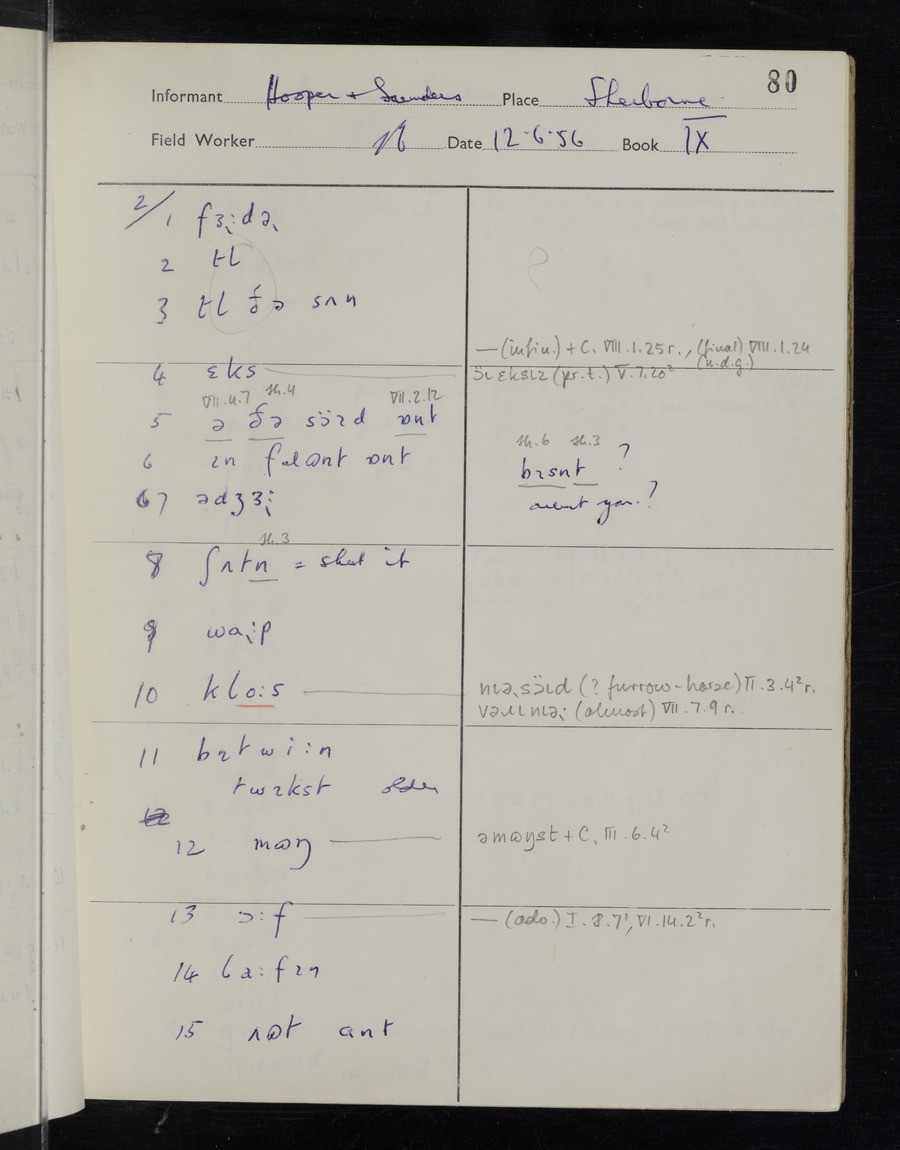 80
Informant Hooper + Saunders Place Sherborne
Field Worker Date 12·6·56 Book IX
2/ 1 fɜ˞ːdə˞
2 tl
3 tl ðə sʌn
— (infin.) + C. VIII.1.25 r., (final) VIII.1.24
(n.d.g.)
4 ɛks
ɛksɪz (pr.t.) V.7.20²
VII.4.7 sh.4 VII.2.12
5 ə ðə sɜ̈ɪd ɒnt
sh.6 sh.3
6 ɪn fəlɒnt ɒnt
bɪsnt ?
7 ədʒɜː
arent you.?
sh.3
8 ʃʌtn = shut it
9 wəɪp
10 kloːs
(? furrow-horse) II.3.4² r.
(almost) VII.7.9 r.
11 bɪtwiːn
twɪkst older
12 mɒŋ
əmɒŋst + C. III.6.4²
13 ɔːf
— (adv.) I.8.7¹, VI.14.2² r.
14 laːfɪn
15 nɒt ant